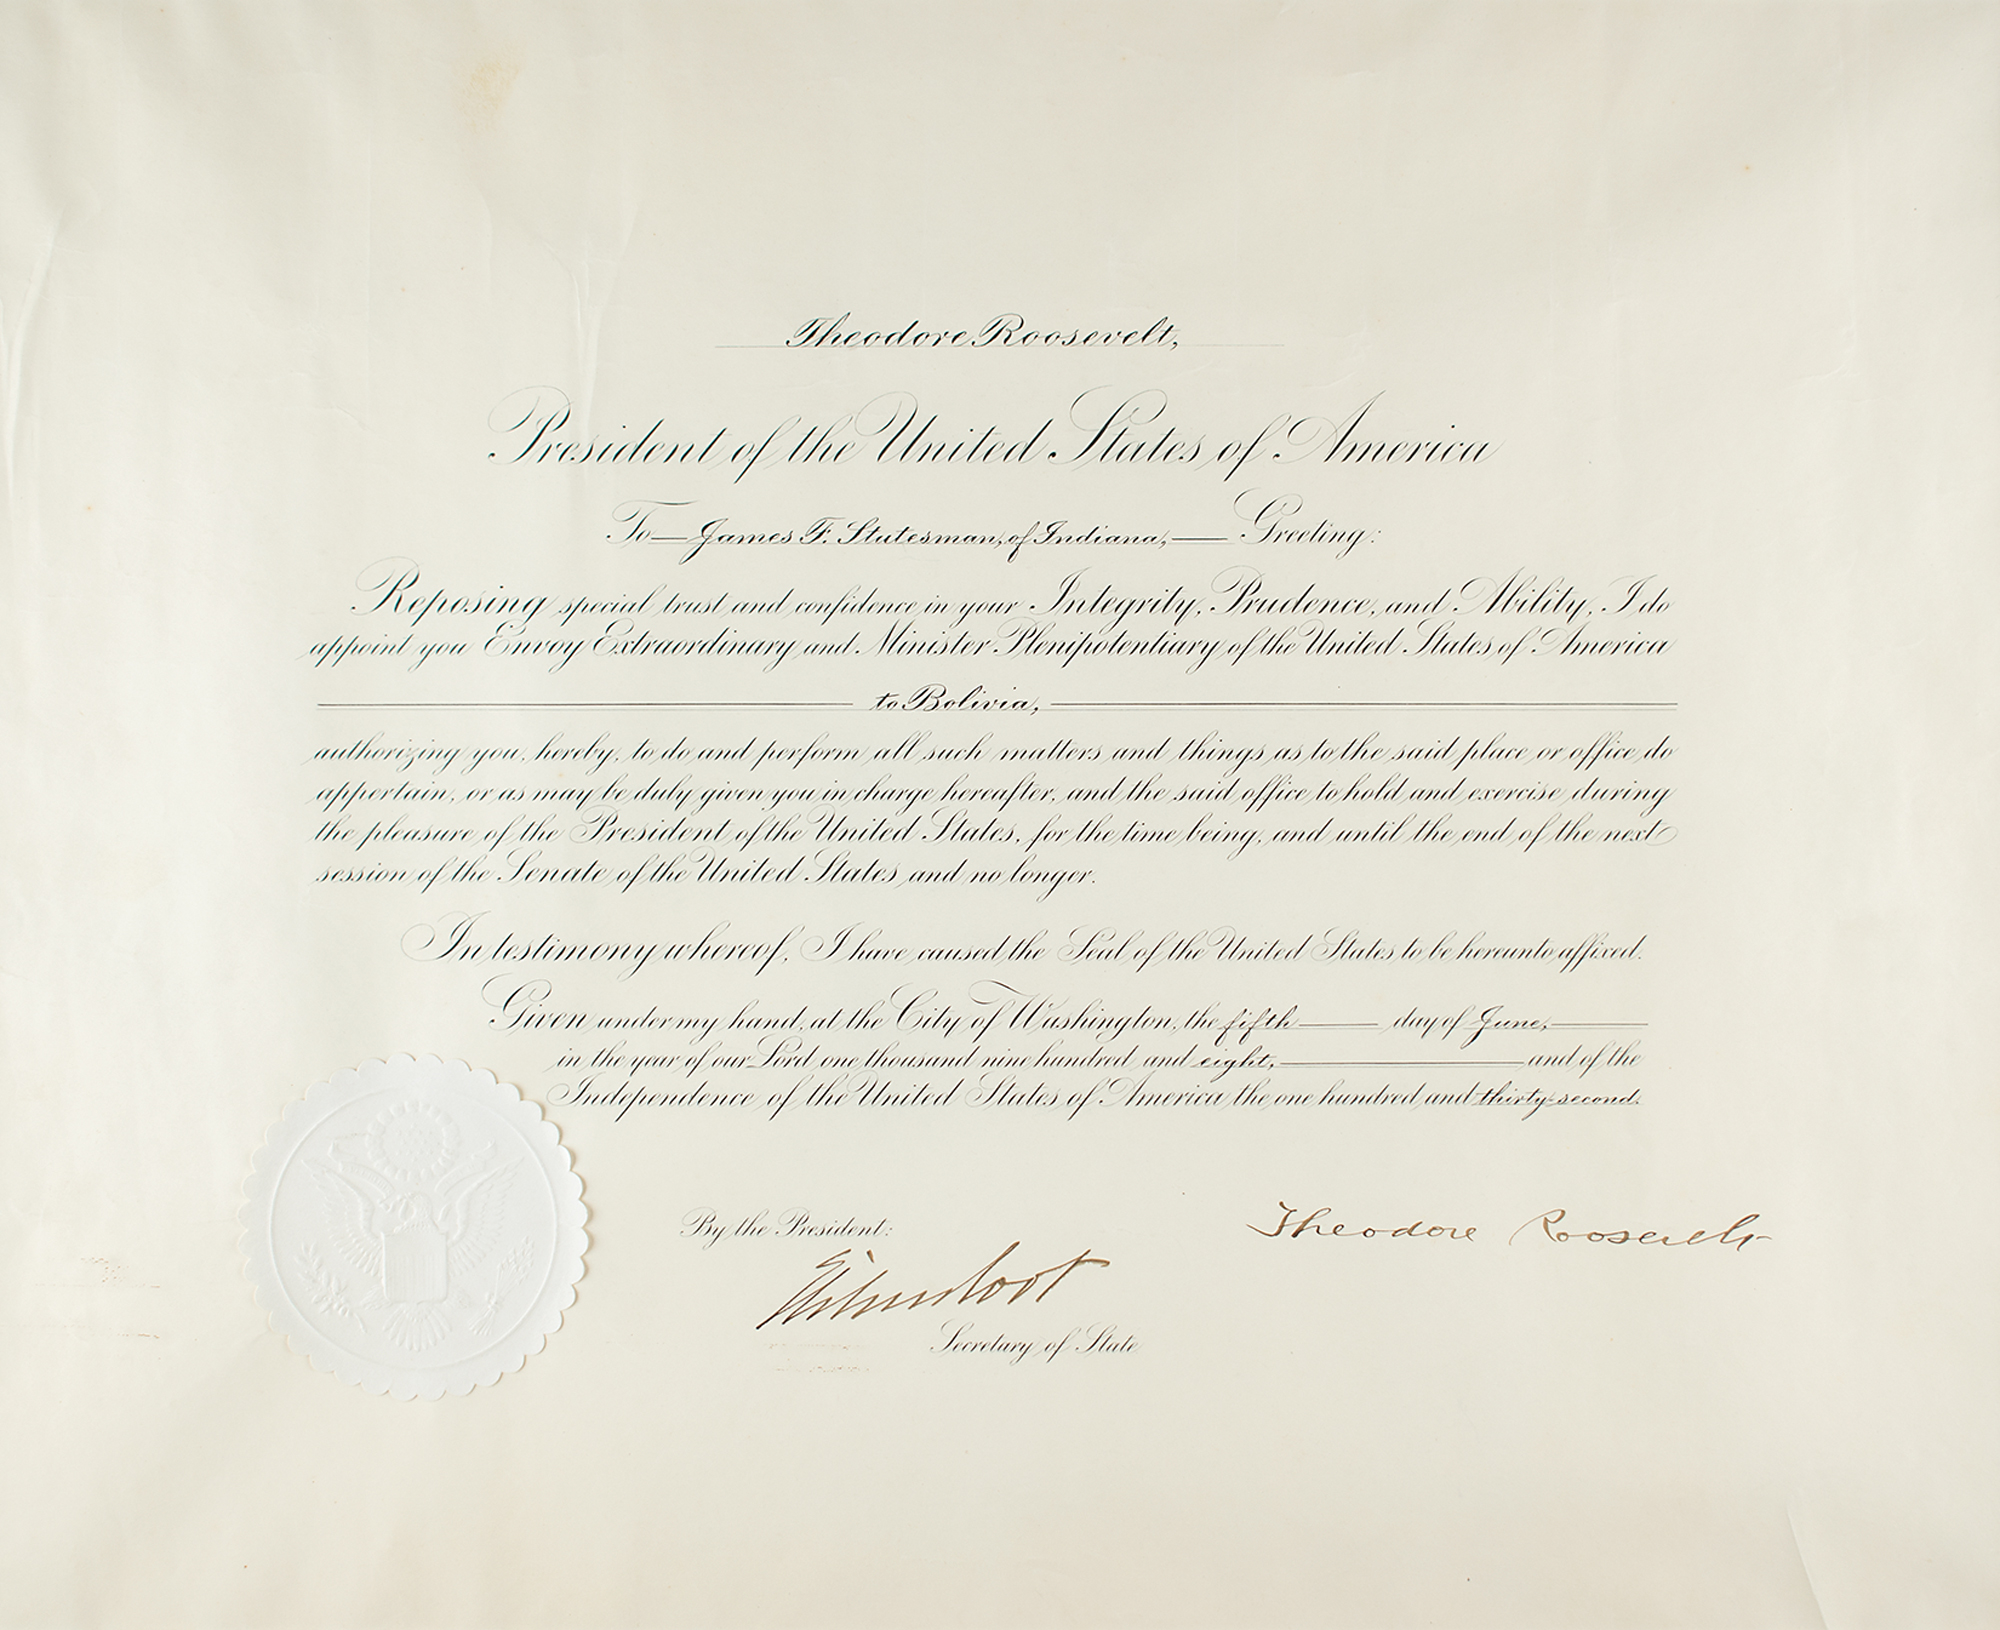 Theodore Roosevelt,
President of the United States of America
To James F. Stutesman, of Indiana, Greeting:
Reposing special trust and confidence in your Integrity, Prudence, and Ability, I do
appoint you Envoy Extraordinary and Minister Plenipotentiary of the United States of America
to Bolivia,
authorizing you, hereby, to do and perform all such matters and things as to the said place or office do
appertain, or as may be duly given you in charge hereafter, and the said office to hold and exercise during
the pleasure of the President of the United States, for the time being, and until the end of the next
session of the Senate of the United States and no longer.
In testimony whereof, I have caused the Seal of the United States to be hereunto affixed.
Given under my hand, at the City of Washington, the fifth day of June,
in the year of our Lord one thousand nine hundred and eight, and of the
Independence of the United States of America the one hundred and thirty-second.
By the President:
Theodore Roosevelt
Elihu Root
Secretary of State